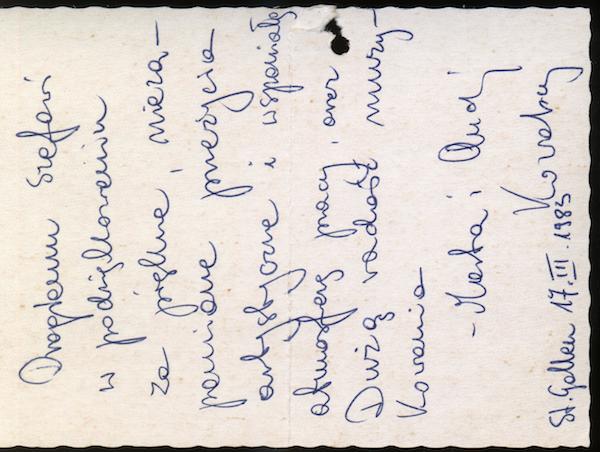 Drogiemu Szefowi
w podziękowaniu
za piękne, nieza-
pomniane przeżycia
artystyczne i wspaniałą
atmosferę pracy, oraz
Dużą radość muzy-
kowania
- Marta i Andj
Kovatsy
St. Gallen 17.III.1983